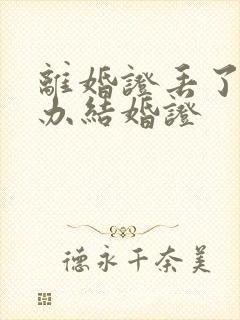 離婚證丟了
办結婚證
德永千奈美